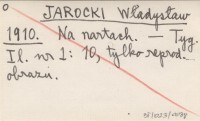 JAROCKI Władysław
1910. Na nartach. — Tyg.
Il. nr 1: 10, tylko reprod.
obrazu.